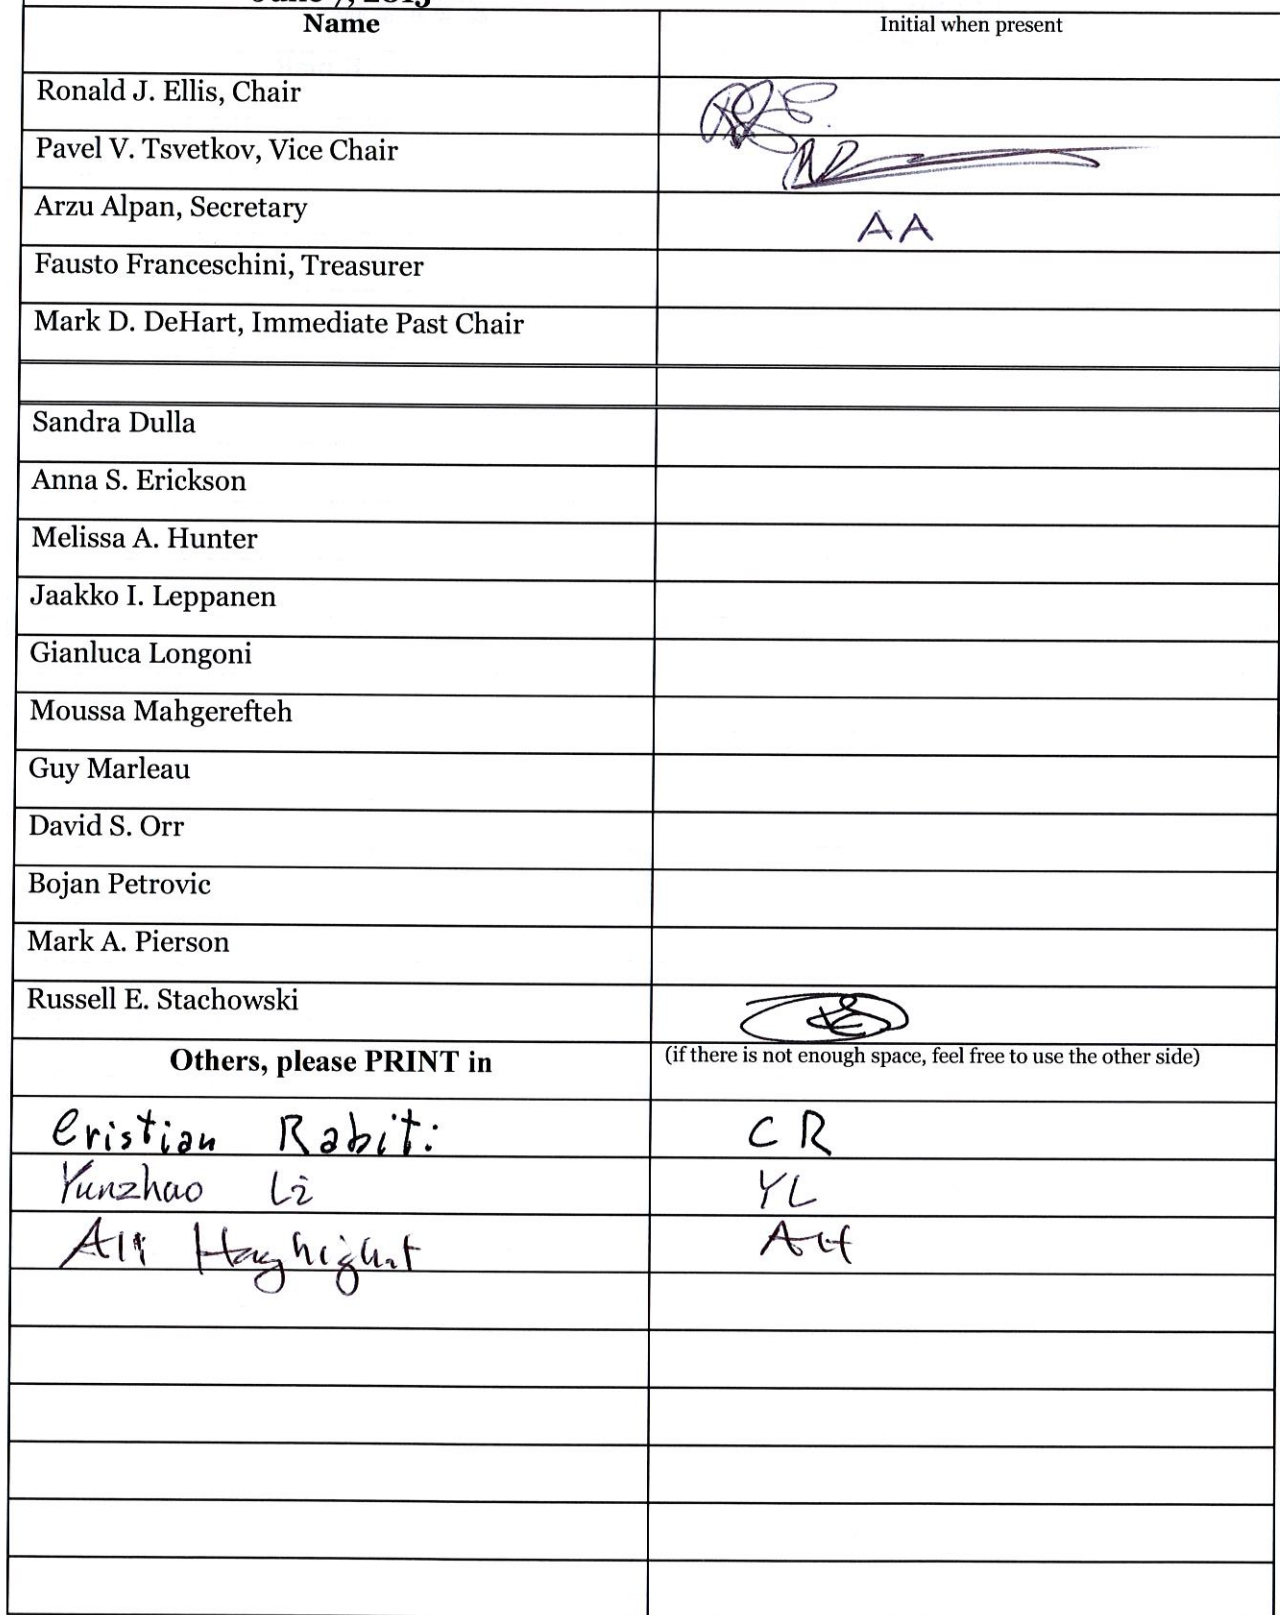 June 7, 2015
Name Initial when present
Ronald J. Ellis, Chair RJE.
Pavel V. Tsvetkov, Vice Chair
Arzu Alpan, Secretary AA
Fausto Franceschini, Treasurer
Mark D. DeHart, Immediate Past Chair
Sandra Dulla
Anna S. Erickson
Melissa A. Hunter
Jaakko I. Leppanen
Gianluca Longoni
Moussa Mahgerefteh
Guy Marleau
David S. Orr
Bojan Petrovic
Mark A. Pierson
Russell E. Stachowski
Others, please PRINT in (if there is not enough space, feel free to use the other side)
Cristian Rabiti CR
Yunzhao Li YL
Ali Haghighat AH